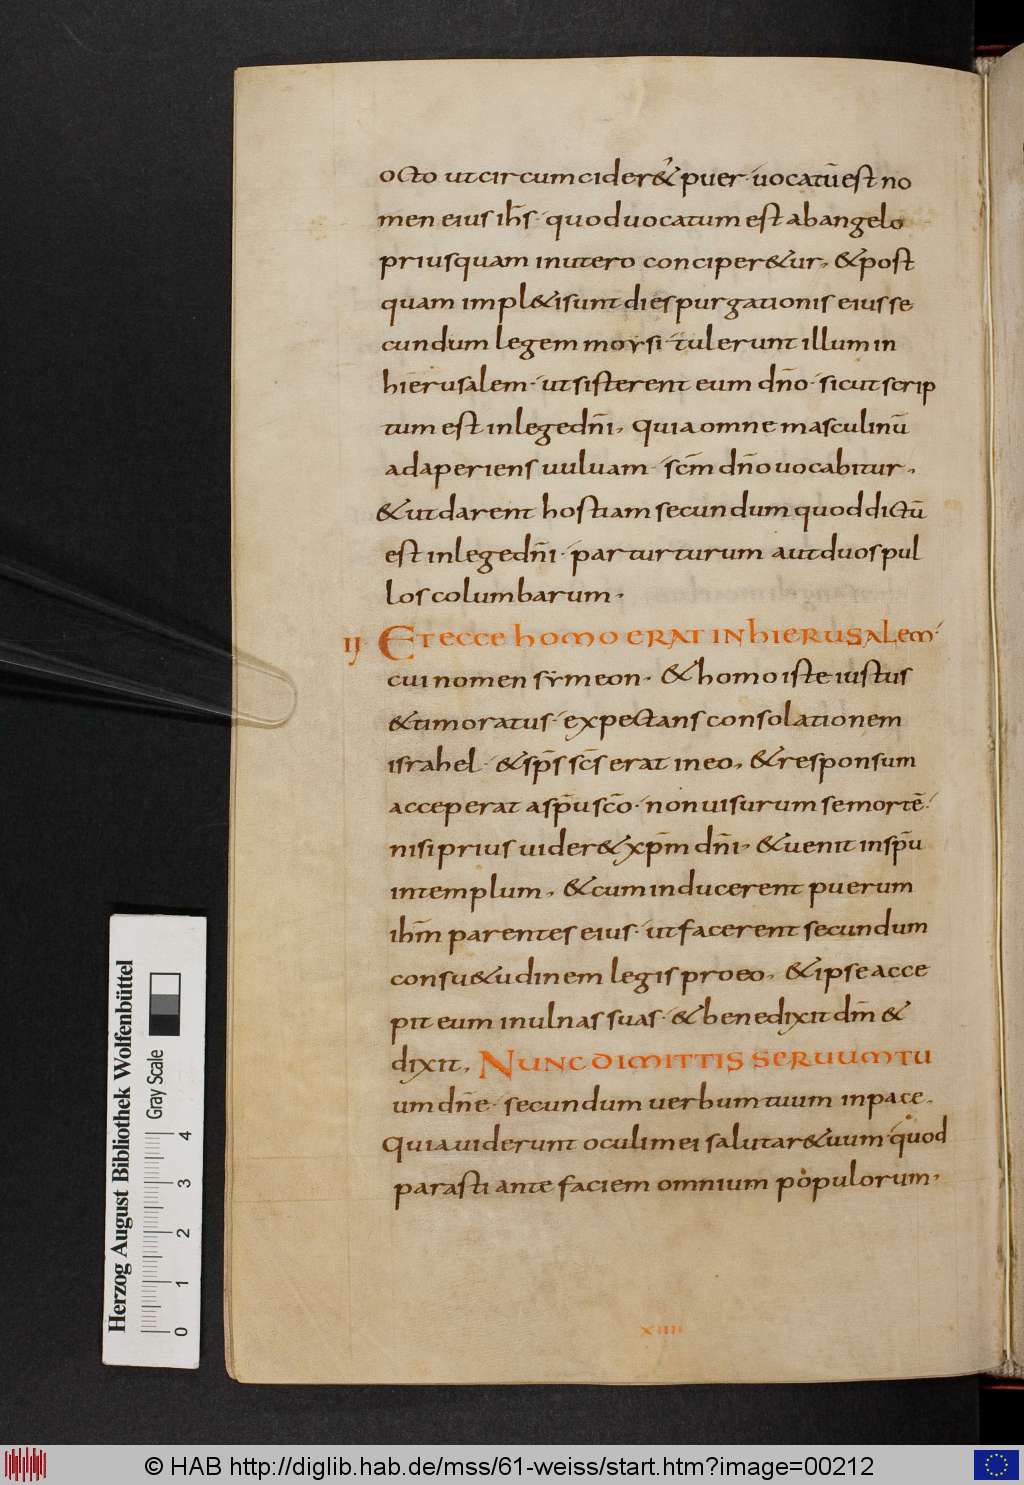 octo ut circumcider& puer· uocatū est no
men eius ih̅s· quod uocatum est ab angelo
priusquam in utero conciper&ur, & post
quam impl&i sunt dies purgationis eius se
cundum legem moysi· tulerunt illum in
hierusalem· ut sisterent eum dn̅o· sicut scrip
tum est in lege dn̅i, quia omne masculinū
adaperiens uuluam· sc̅m dn̅o uocabitur,
& ut darent hostiam secundum quod dictū
est in lege dn̅i· par turturum aut duos pul
los columbarum,
IJ· ET ECCE HOMO ERAT IN HIERUSALEM·
cui nomen symeon· & homo iste iustus
& timoratus· expectans consolationem
israhel· & sp̅s sc̅s erat in eo, & responsum
acceperat a sp̅u sc̅o· non uisurum se mortē·
nisi prius uider& xp̅m dn̅i, & uenit in sp̅u
in templum, & cum inducerent puerum
ih̅m parentes eius· ut facerent secundum
consu&udinem legis pro eo, & ipse acce
pit eum in ulnas suas· & benedixit dm̅ &
dixit, NUNC DIMITTIS SERUUM TU
um dn̅e· secundum uerbum tuum in pace,
Quia uiderunt oculi mei salutar& uum· quod
parasti ante faciem omnium populorum,
XIIII
Herzog August Bibliothek Wolfenbüttel
Gray Scale
0 1 2 3 4
© HAB http://diglib.hab.de/mss/61-weiss/start.htm?image=00212